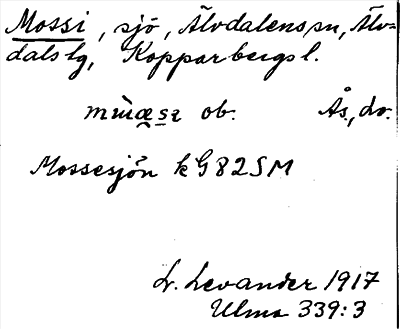 Mossi, sjö, Älvdalens sn, Älv-
dals tg, Kopparbergs l.
ob. Ås., dv.
Mossesjön k G82SM
L. Levander 1917
Ulma 339:3